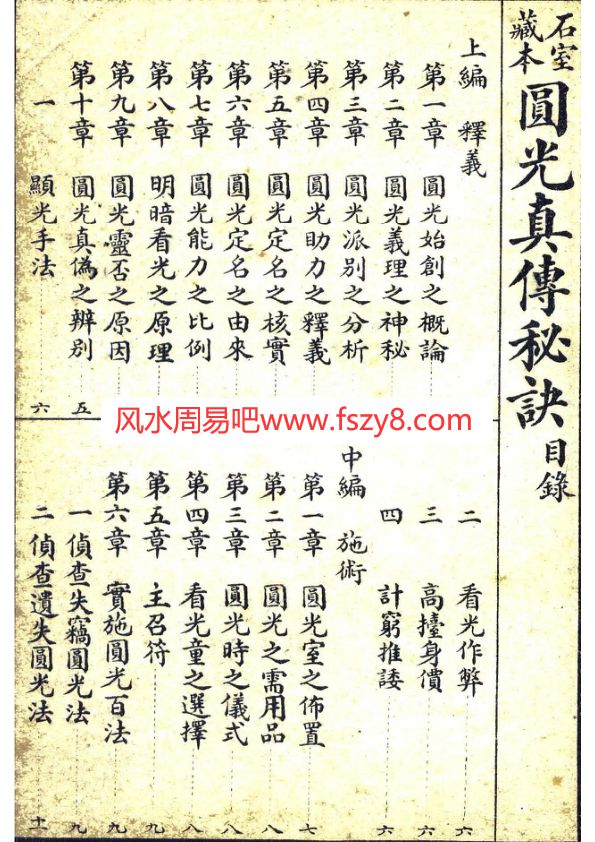 石室藏本 圓光真傳秘訣 目錄
上編 釋義
第一章 圓光始創之概論
第二章 圓光義理之神秘
第三章 圓光派別之分析
第四章 圓光助力之釋義
第五章 圓光定名之核實
第六章 圓光定名之由來
第七章 圓光能力之比例
第八章 明暗看光之原理
第九章 圓光靈否之原因
第十章 圓光真偽之辨別 五
一 顯光手法 六
二 看光作弊 六
三 高擡身價 六
四 計窮推諉 六
中編 施術
第一章 圓光室之佈置 七
第二章 圓光之需用品 八
第三章 圓光時之儀式 八
第四章 看光童之選擇 八
第五章 主召符 九
第六章 實施圓光百法 九
一 偵查失竊圓光法 九
二 偵查遺失圓光法 十
风水周易吧www.fszy8.com